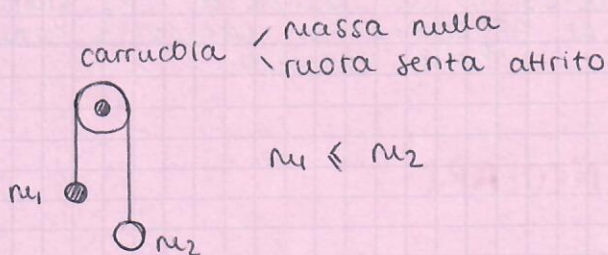 carrucola / massa nulla
\ ruota senza attrito
m1 ⩽ m2
m1
m2